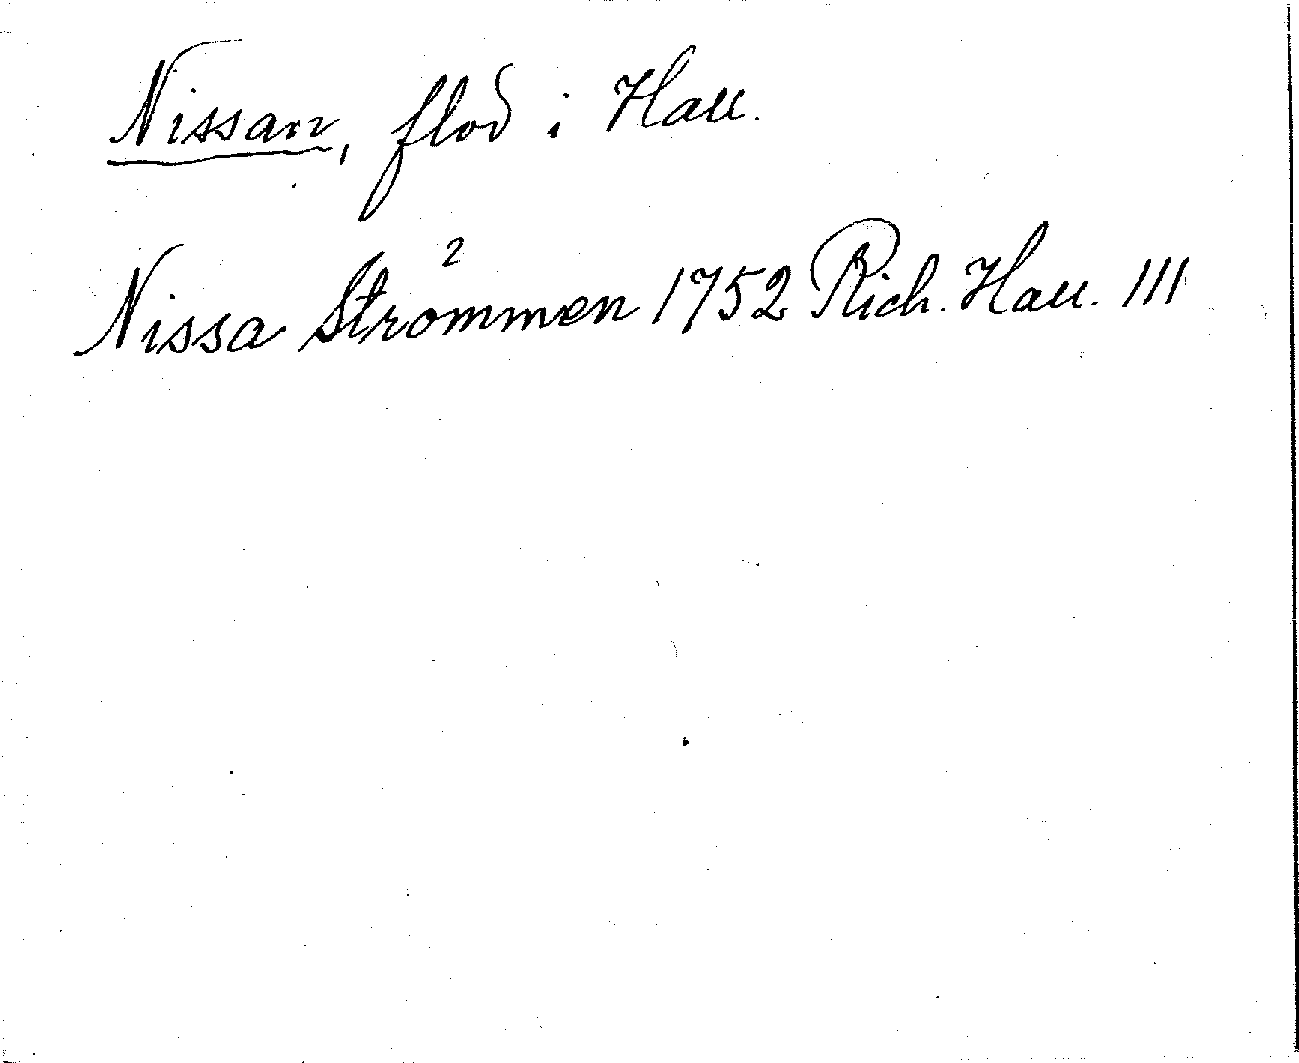 Nissan, flod i Hall.
Nissa Strömmen 1752 Rich. Hall. 111